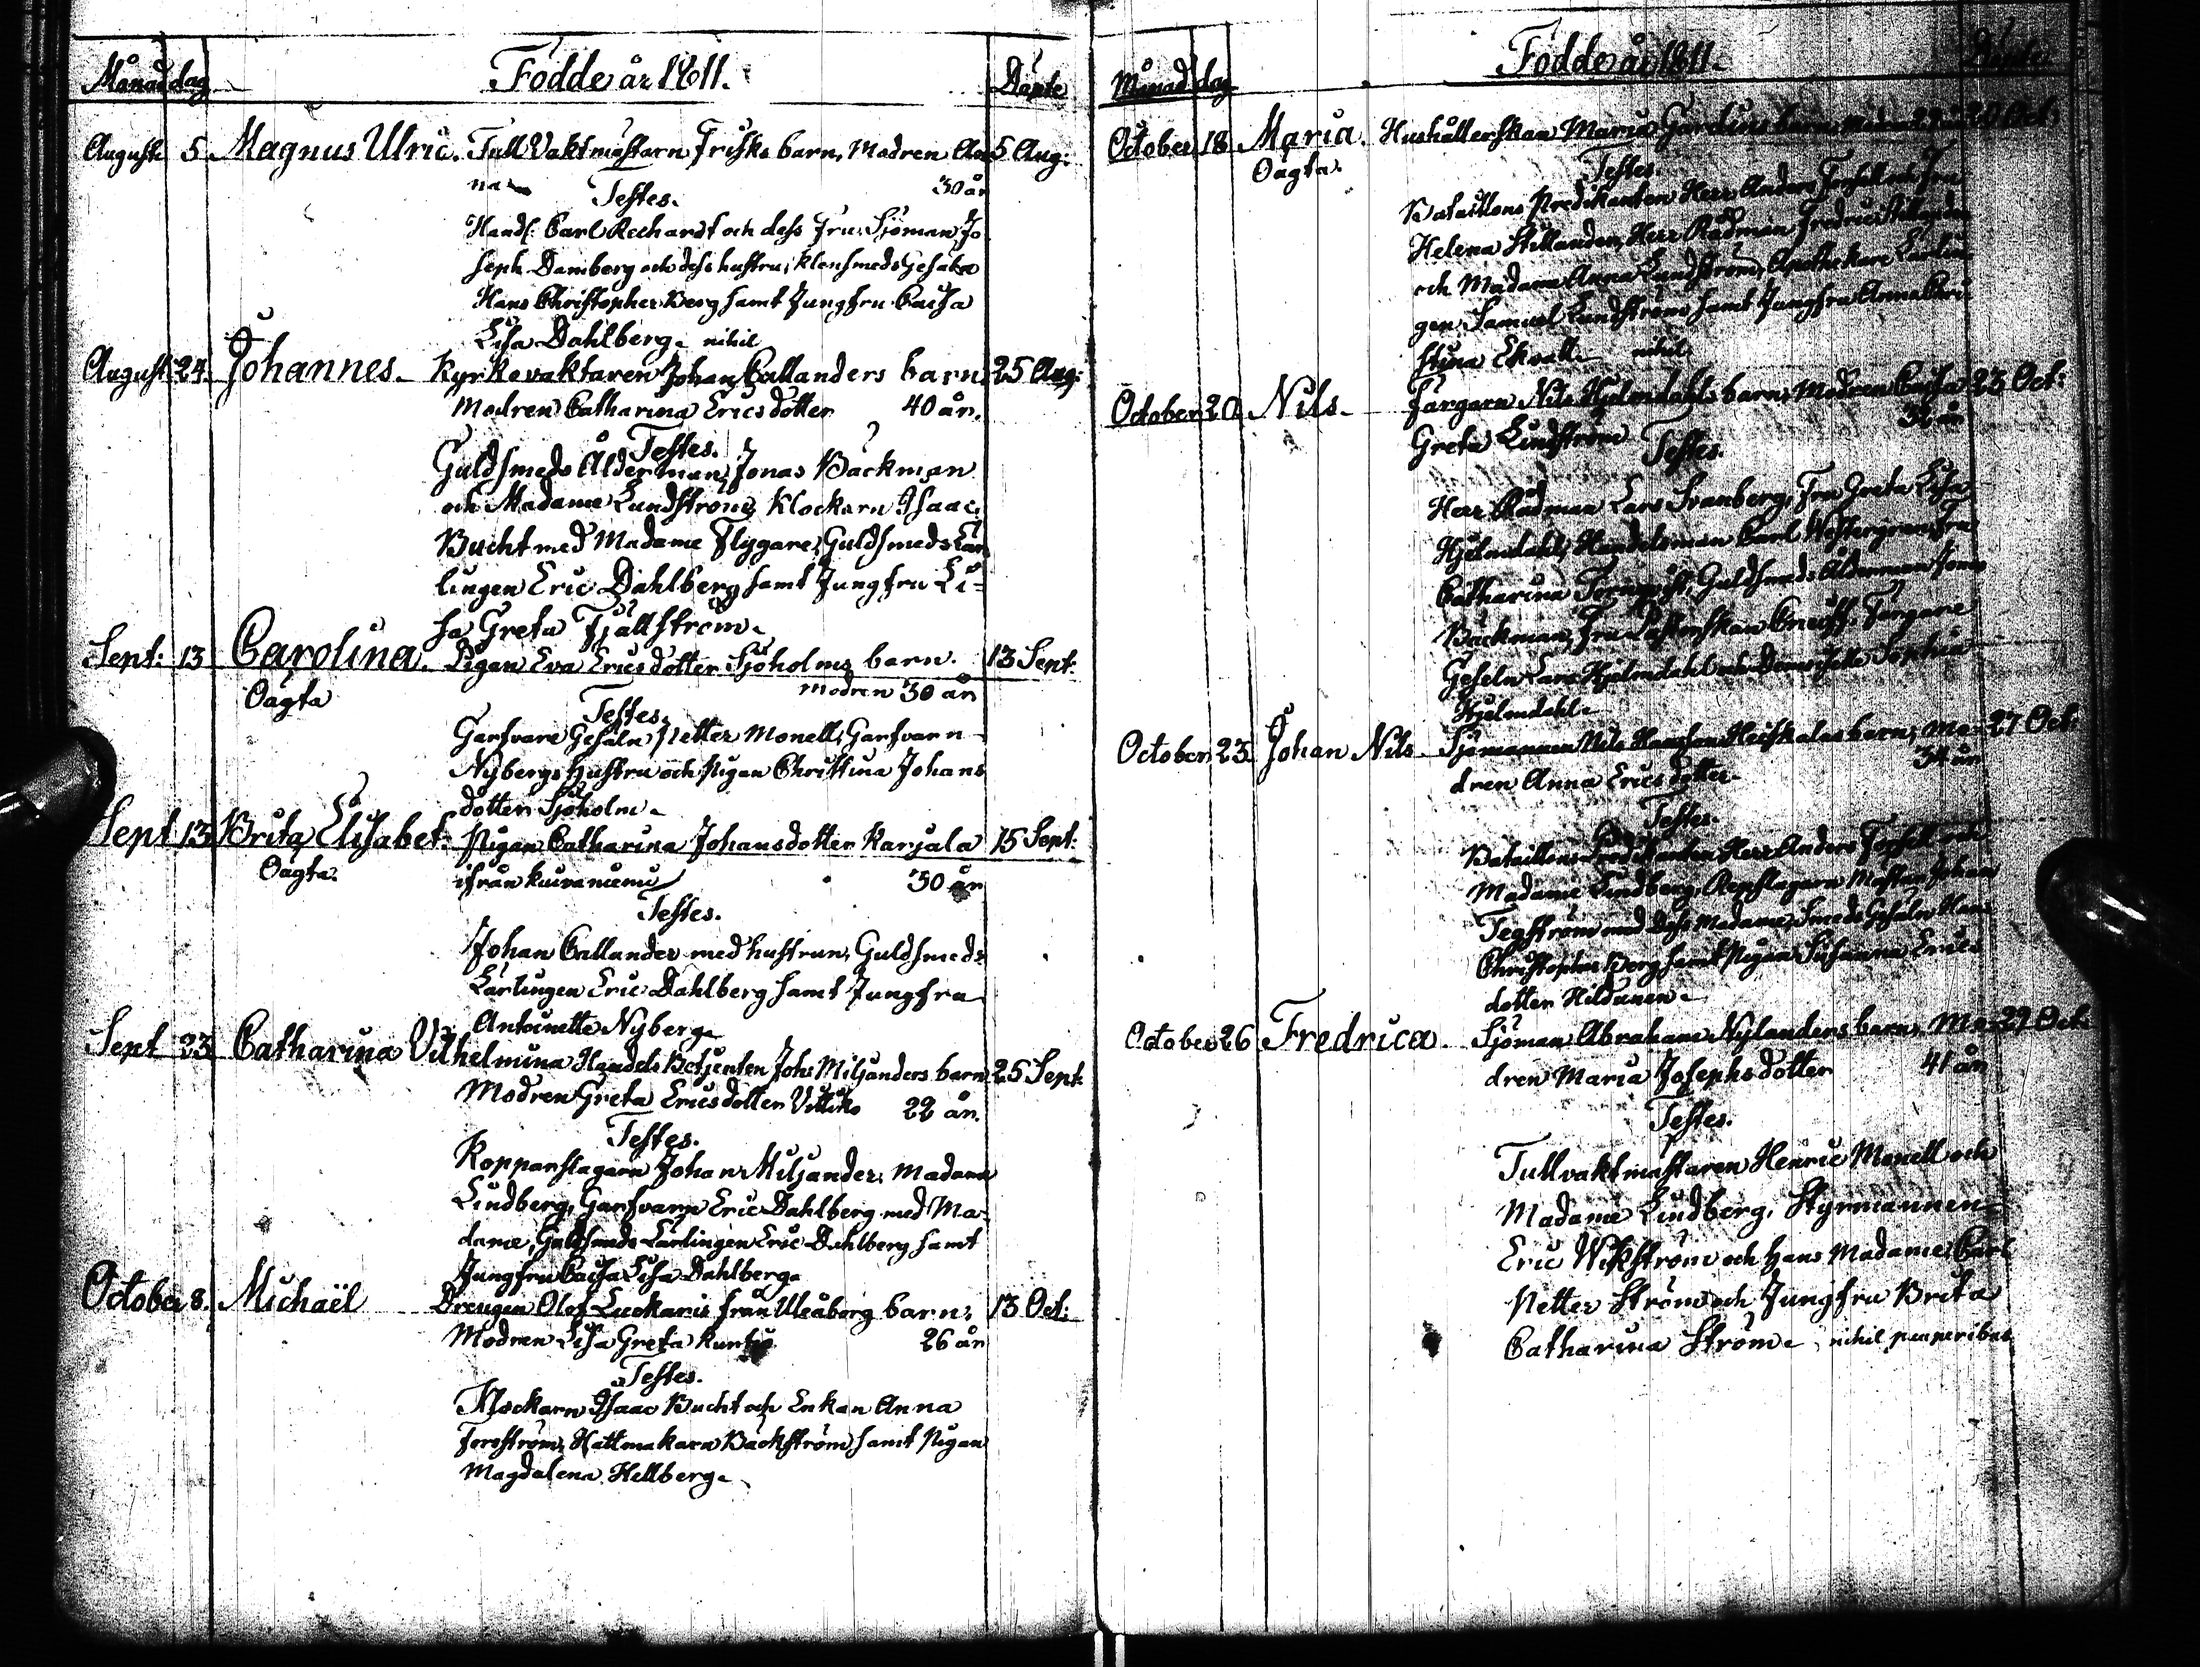 Månad dag Födde år 1811. Döpte
Augusti 5. Magnus Ulric. Tull Vaktmästarn Frisks barn, Modren An 5 Aug:
na 30 år
Testes.
Handl: Carl Rechardt och dess Fru, Sjöman Jo
seph Damberg och dess hustru, Klensmeds Gesälen
Hans Christopher Berg samt Jungfru Caisa
Lisa Dahlberg. nihil
August 24. Johannes. Kyrkovaktaren Johan Callanders barn 25 Aug:
Modren Catharina Ericsdotter 40 år.
Testes.
Guldsmeds Ålderman Jonas Bäckman
och Madame Lundström, Klockarn Isaac
Bucht med Madame Flygare, Guldsmeds Lär
lingen Eric Dahlberg samt Jungfru Li=
sa Greta Fjällström.
Sept: 13 Carolina. Pigan Eva Ericsdotter Sjöholms barn. 13 Sept:
Oägta modren 30 år
Testes.
Garfvare Gesäln Petter Monell, Garfvarn
Nybergs Hustru och Pigan Christina Johans
dotter Sjöholm.
Sept 13 Brita Elisabet. Pigan Catharina Johansdotter Karjala 15 Sept:
Oägta. ifrån Kuivaniemi 30 år
Testes.
Johan Callander med hustrun, Guldsmeds
Lärlingen Eric Dahlberg samt Jungfru
Antoinette Nyberg.
Sept 23 Catharina Vilhelmina Handels Betjenten Johs Miljanders barn 25 Sept
Modren Greta Ericsdotter Vittiko 22 år.
Testes.
Kopparslagarn Johan Miljander, Madame
Lindberg, Garfvarn Eric Dahlberg med Ma-
dame, Guldsmeds Lärlingen Eric Dahlberg samt
Jungfru Caisa Lisa Dahlberg.
October 8. Michaël Drengen Olof Luckaris från Uleåborg barn, 13 Oct:
Modren Lisa Greta 26 år
Testes.
Klockarn Isaac Bucht och Enkan Anna
Forsström, Hattmakarn Bäckström samt Pigan
Magdalena Hellberg.
Månad dag Födde år 1811. Döpte
October 18 Maria. Hushållerskan Maria Gardins barn 20 Oct:
Oägta. Testes.
Bataillons Predikanten Herr Anders Forsell och Fru
Helena Stillander, Herr Rådman Fredric Stillander
och Madame Anna Lundström, Apothekare Lärlin
gen Samuel Lundström samt Jungfru Anna Chri
stina Ekvall. nihil
October 20 Nils. Färgarn Nils Hjelmdahls barn, Modren Caisa 23 Oct:
Greta Lindström 32 år
Testes.
Herr Rådman Lars Svanberg, Fru Greta Lisa
Hjelmdahl, Handelsman Carl Westergren, Fru
Catharina Guldsmeds Ålderman Jonas
Bäckman, Fru Färgare
Geseln Lars Hjelmdahl och Demoiselle Sophia
Hjelmdahl.
October 23. Johan Nils Sjömannen Nils Hansson Heiskalas barn, Mo- 27 Oct
dren Anna Ericsdotter 34 år
Testes.
Bataillons Predikanten Herr Anders Forsell och
Madame Lindberg, Repslagarn Mästarn Johan
Tegström med Dess Madame, Smeds Gesäln Hans
Christopher Berg samt Pigan Susanna Erics
dotter Hildunen.
October 26 Fredrica. Sjöman Abraham Nylanders barn, Mo- 29 Oct
dren Maria Josephsdotter 41 år
Testes.
Tullvaktmästaren Henric Monell och
Madame Lindberg, Styrmannen
Eric Wikström och hans Madame, Carl
Petter Ström och Jungfru Brita
Catharina Ström. nihil pauperibus